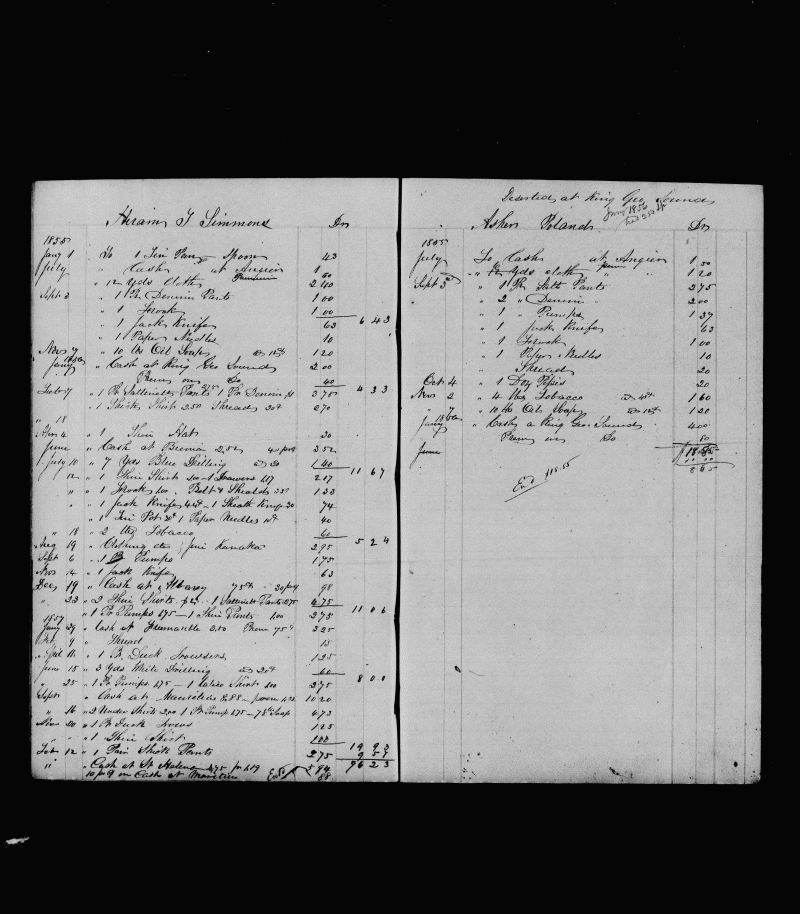 Hiram T Simmons Drs
1855
Jany 1 To 1 Tin Pan Spoon 43
July " Cash at Angier 1
Premium 60
" 12 yds Cloth 2 40
Sept 3 " 1 Pr Dennin Pants 1 00
" 1 Frock 1 00
" 1 Jack Knife 63 6 43
" 1 Paper Needles 10
Nov 7 " 10 lbs Oil Soap 12ct 1 20
1856
Jany " Cash at King Geo Sounds 2 00
Prem on Do 40
" 1 Pr Sattinetts Pants 1 Pr Dennin 3 75 4 33
" 1 Thick Shirt 2.50 Threads 20ct 2 70
" 18
" 1 Thin Hat 30
June " Cash at 3 52
July 10 " 7 yds Blue Drilling 20 1 40
12 " 1 Thin Shirt 100 1 Drawers 117 2 17 11 67
" 1 Frock 100 Belt & Sheath 33 1 33
" 1 Jack Knife 44ct 1 Sheath Knife 30 74
" 1 Tin Pot 30ct 1 Paper Needles 10ct 40
" 18 " 2 lbs Tobacco 60
Aug 19 " Clothing 2 95 5 24
Sept 6 " 1 Pr Pumps 1 75
Nov 14 " 1 Jack Knife 63
Dec 19 " Cash at Albany 75ct 98
" 22 " 2 Thin Shirts 1 Sattinett Pants 4 75
" 1 Pr Pumps 1.75 1 Thin Pants 1.00 2 75 11 06
1857
Jany 29 " Cash at Freemantle 2.50 Prem 75ct 3 25
9 " Thread 15
" 1 Pr Duck Trousers 1 25
June 15 " 3 yds White Drilling 20ct 60
" 25 " 1 Pr Pumps 1.75 1 Calico Shirt 100 2 75 8 00
Sept " Cash at Mauritius 8.88 10 20
" 16 " 2 Under Shirts 2.00 1 Pr Pumps 1.75 Soap 4 73
Nov 20 " 1 Pr Duck Trows 1 25
" 1 Thin Shirt 1 00
Feb 12 " 1 Pair Thick Pants 2 75 19 93
9 57
" " Cash at St Helena 4.75 5 94 96 23
on Cash at Mauritius End 88
Deserted at King Geo Sounds
Jany 1856
Asher Polands Drs
1855
July To Cash at Angier 1
Prem 50
" yds cloth " " 1 20
Sept 3 " 1 Pr Satt Pants 2 75
" 2 " Dennin " 2 00
" 1 " Pumps 1 37
" 1 Jack Knife 63
" 1 Frock 1 00
" 1 Paper Needles 10
" Thread 20
Oct 4 " 1 Doz Pipes 20
Nov 2 " 4 lbs Tobacco 40ct 1 60
" 7 " 10 lbs Oil Soap 12ct 1 20
1856
Jany " Cash a King Geo Sounds 4 00
Prem on Do 80
June 18 55
End $18.55